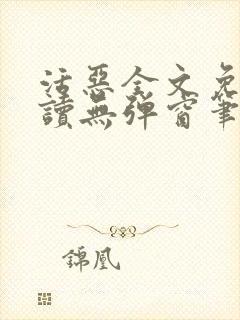 活惡全文免
讀無彈窗筆
錦凰